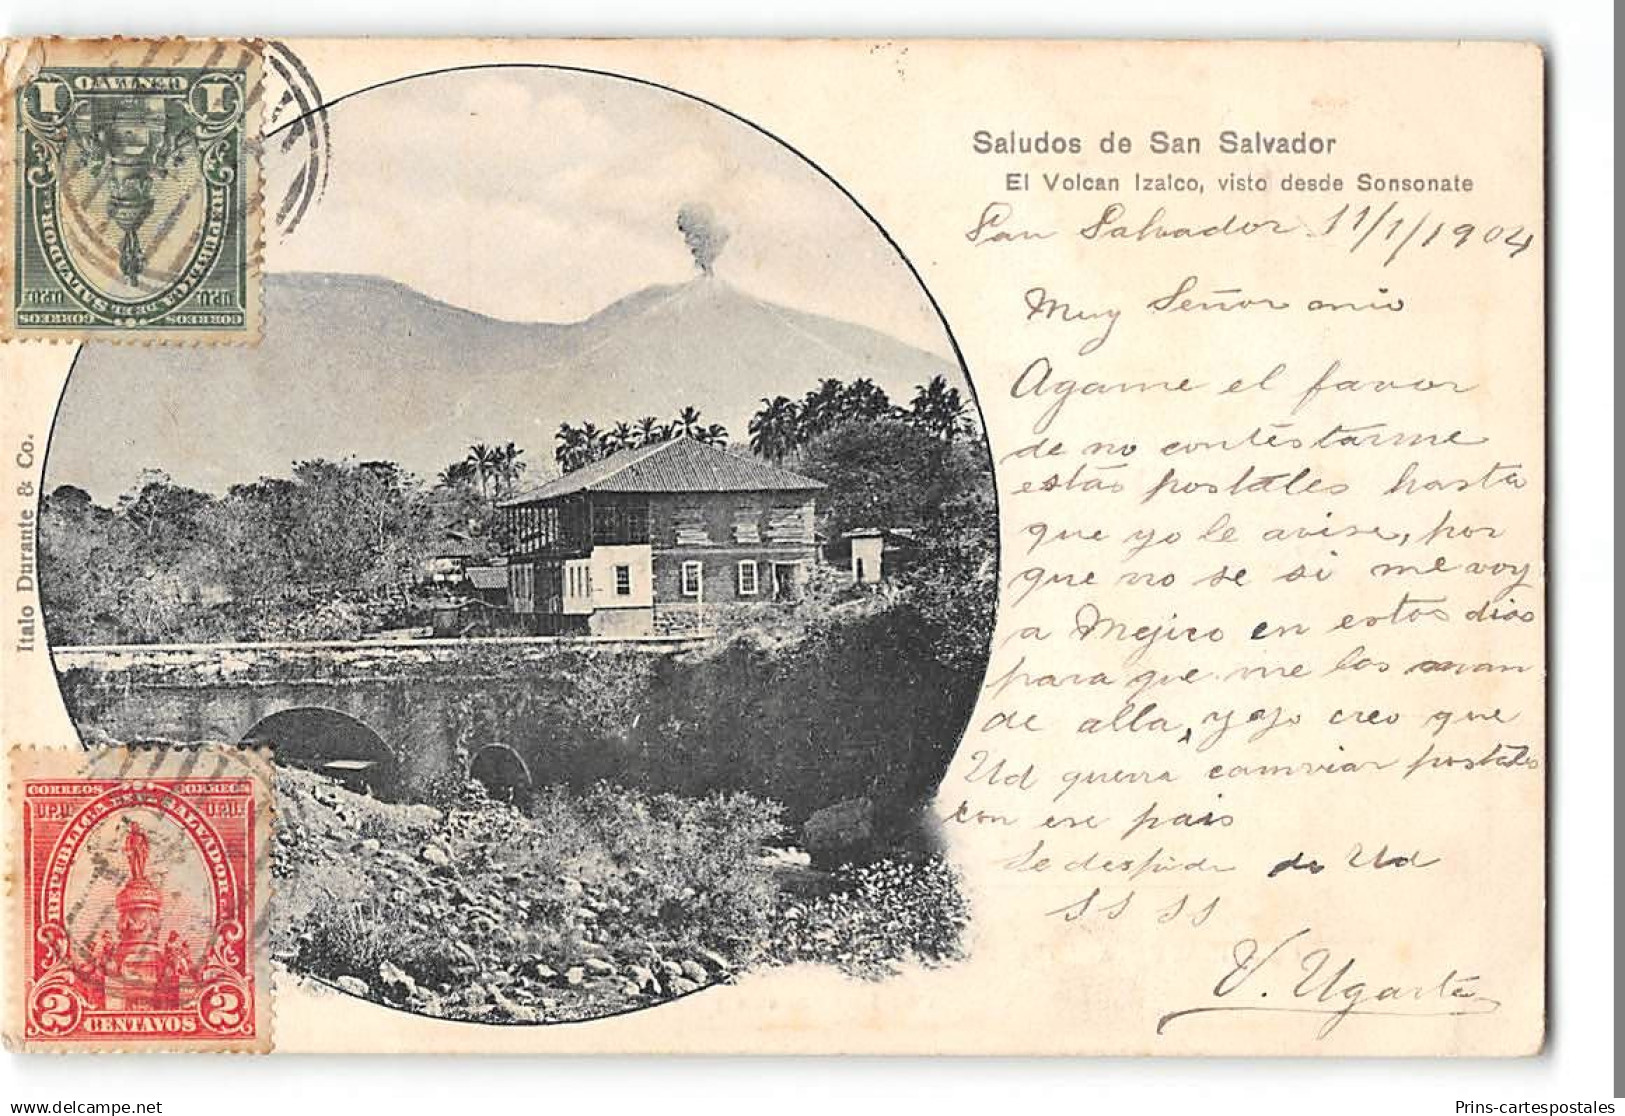 Saludos de San Salvador
El Volcan Izalco, visto desde Sonsonate
San Salvador 11/1/1904
Muy Señor mio
Agame el favor
de no contéstarme
estás postáles hasta
que yo le avise, por
que no se si me voy
a Mejico en estos dias
para que me las man
de alla, y yo creo que
Ud querra camviar postales
con ese pais
Se despide de Ud
SS SS
V. Ugarte
Italo Durante & Co.
1 UN CENTAVO 1
REPUBLICA DEL SALVADOR
U.P.U. U.P.U.
CORREOS CORREOS
CORREOS CORREOS
U.P.U. U.P.U.
REPUBLICA DEL SALVADOR
2 CENTAVOS 2
delcampe.net
Prins-cartespostales